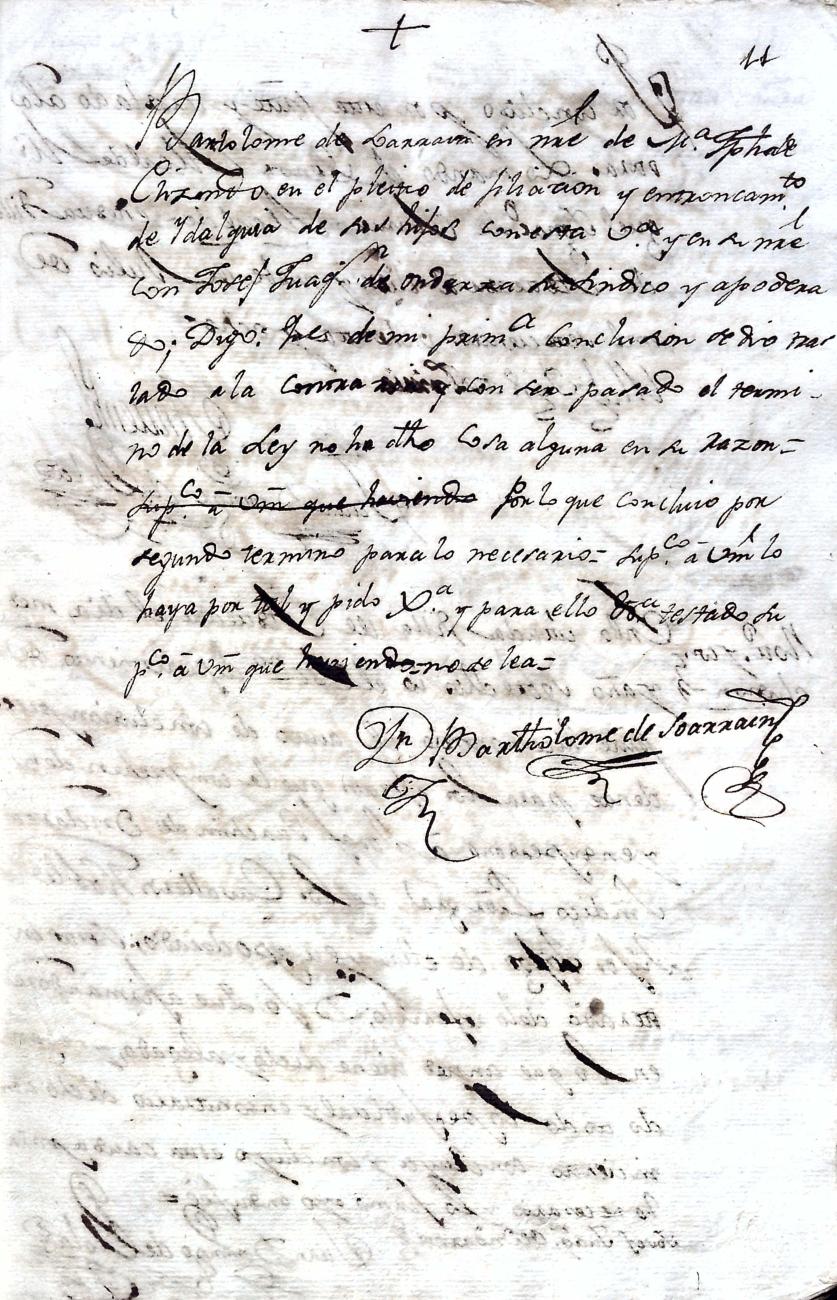 +
11
Bartolome de Larrain en nre de M.ª Jpha de
Elizondo en el pleitto de filiacion y entroncam.to
de Ydalguia de sus hijos con esta V.ª y en su nre
con Josef Juaq.n de ondarza su sindico y apodera
do; Digo: que de mi prim.ª Conclusion se dio tras
lado a la Contraria y con ser pasado el termi-
no de la Ley no ha dho Cosa alguna en su razon=
sup.co â Vm que haviendo Por lo que concluio por
segundo termino para lo necesario= sup.co â Vm lo
haya por tal y pido X.ª y para ello &ra testado su
p.co â Vm que haviendo=no se lea=
Dn Bartholome de Larrain